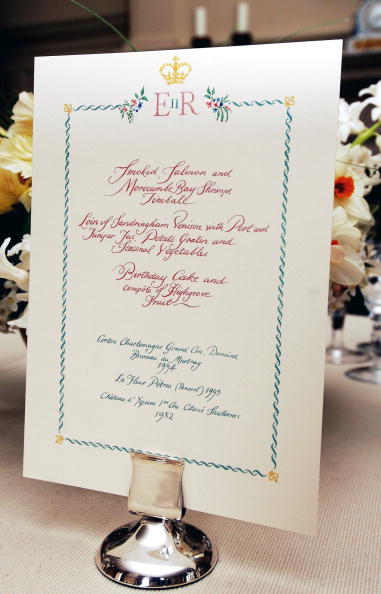 EIIR
Smoked Salmon and
Morecambe Bay Shrimp
Timbale
Loin of Sandringham Venison with Port and
Juniper Jus Potato Gratin and
Seasonal Vegetables
Birthday Cake and
compôte of Highgrove
Fruit
Corton Charlemagne Grand Cru, Domaine
Bonneau du Martray
1994
La Fleur Pétrus (Pomerol) 1995
Château d'Yquem 1er Cru Classé Sauternes
1982